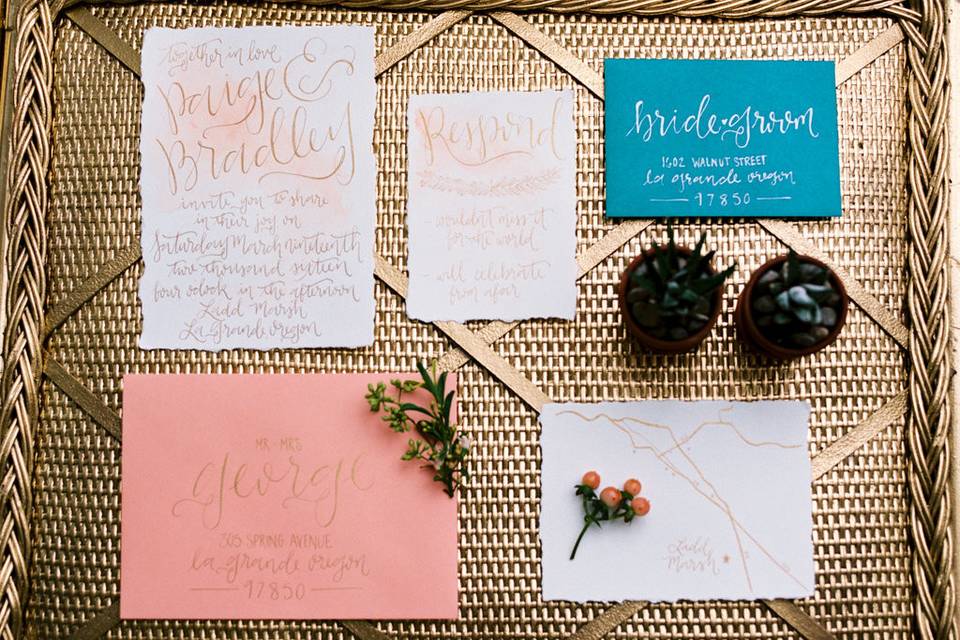 together in love
Paige &
Bradley
invite you to share
in their joy on
Saturday March nineteenth
two thousand sixteen
four o'clock in the afternoon
Ladd Marsh
La Grande Oregon
Respond
- wouldn't miss it
for the world
- will celebrate
from afar
bride & groom
1602 WALNUT STREET
la grande oregon
97850
MR. MRS.
george
305 SPRING AVENUE
la grande oregon
97850
Ladd
Marsh